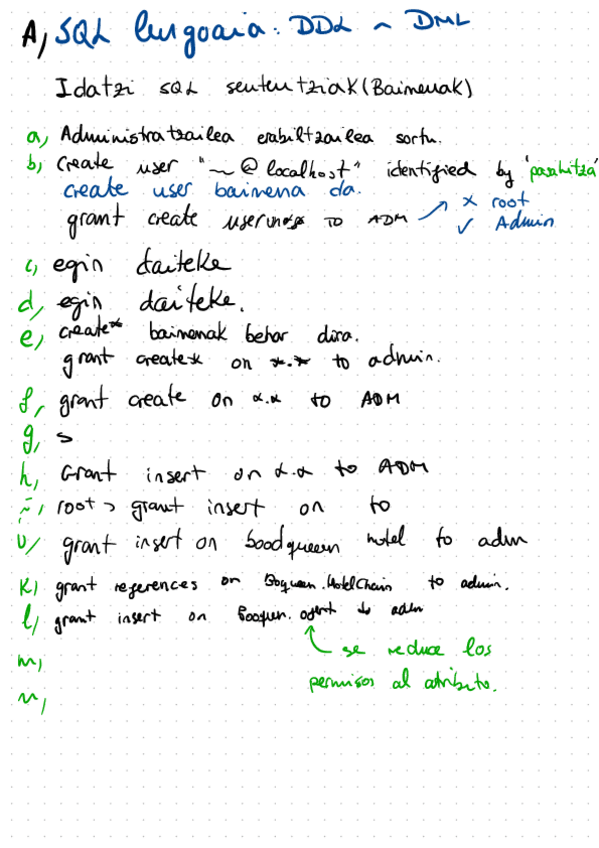 A, SQL lengoaia: DDL ~ DML
Idatzi SQL sententziak (Baimenak)
a, Administratzailea erabiltzailea sortu.
b, Create user "~@localhost" identified by 'pasahitza'
create user baimena da.
x root
grant create user TO ADM
✓ Admin
c, egin daiteke
d, egin daiteke.
e, create* baimenak behar dira.
grant create* on *.* to admin.
f, grant create on *.* to ADM
g, s
h, Grant insert on *.* to ADM
root > grant insert on to
grant insert on hotel to adm
k) grant references on .HotelChain to admin.
l, grant insert on adm
se reduce los
m,
permisos al atributo.
n,